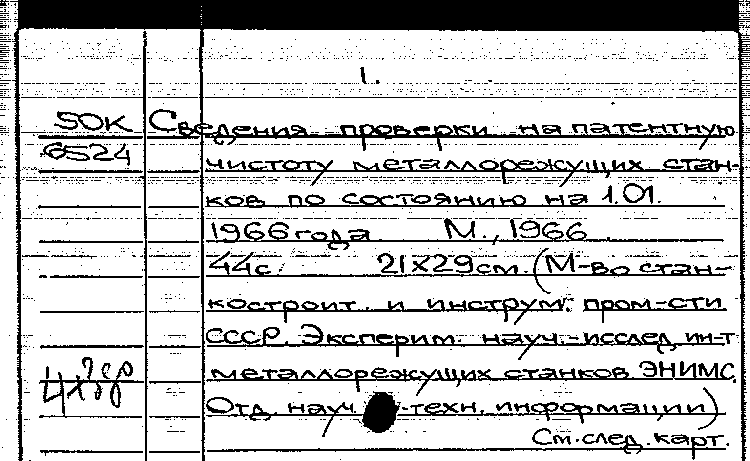 1.
50К Сведения проверки на патентную
6524 чистоту металлорежущих стан-
ков по состоянию на 1.01.
1966 года М., 1966
44с. 21x29см. (М-во стан-
костроит. и инструм. пром-сти
СССР. Эксперим. науч.-исслед. ин-т
металлорежущих станков ЭНИМС.
Отд. науч.-техн. информации)
См. след. карт.